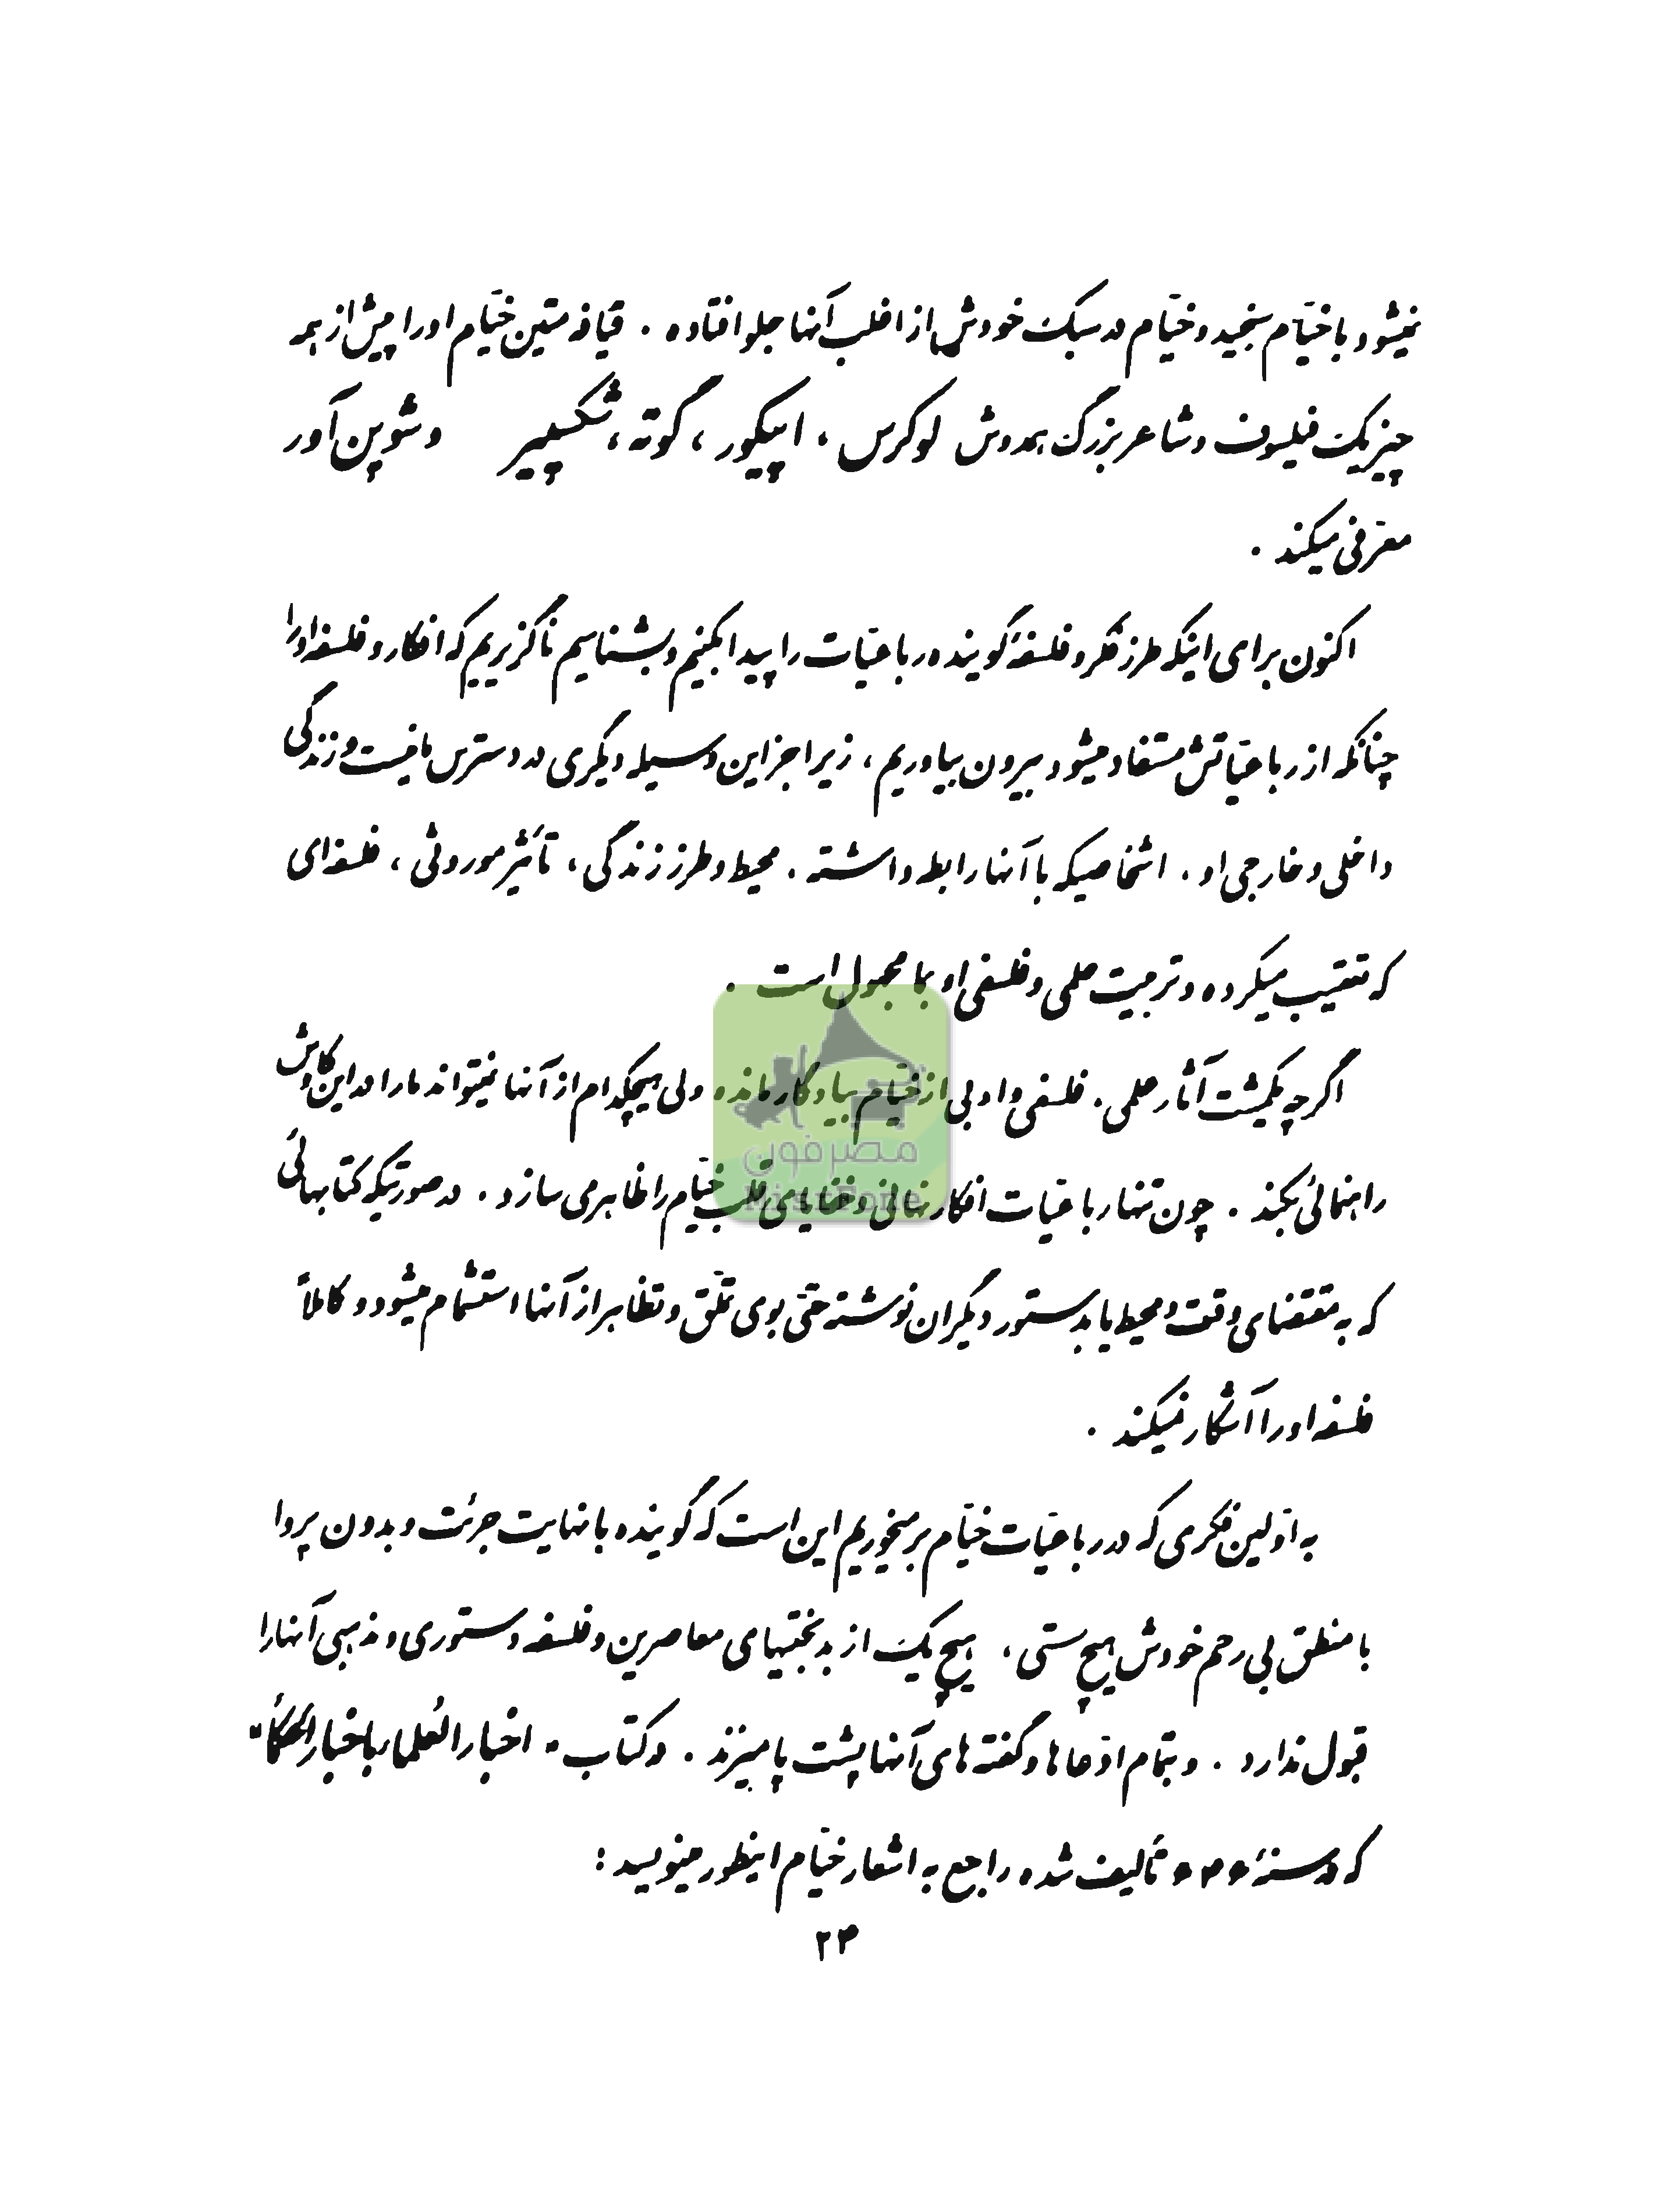 نمیشود با خیّام سنجید و خیّام در سبک خودش از اغلب آنها جلو افتاده . قیافه متین خیّام اورا پیش از همه
چیز یک فیلسوف و شاعر بزرگ همدوش لوکرس ، اپیکور ، گوته ، شکسپیر و شوپن آور
معرّفی میکند .
اکنون برای اینکه طرز فکر و فلسفهٔ گوینده رباعیّات را پیدا بکنیم و بشناسیم ناگزیریم که افکار و فلسفه اورا
چنانکه از رباعیّاتش مستفاد میشود بیرون بیاوریم ، زیرا جز این وسیله دیگری در دسترس ما نیست و زندگی
داخلی و خارجی او . اشخاصیکه با آنها رابطه داشته . محیط و طرز زندگی ، تأثیر موروثی ، فلسفه‌ای
که تعقیب میکرده و تربیت علمی و فلسفی او بما مجهول است .
اگرچه یکمشت آثار علمی . فلسفی و ادبی از خیّام بیادگار مانده ولی هیچکدام از آنها نمیتواند مارا در این کاوش
راهنمائی بکند . چون تنها رباعیّات افکار نهانی و خفایای قلب خیّام را ظاهر می سازد . در صورتیکه کتابهائی
که به مقتضای وقت و محیط یا بدستور دیگران نوشته حتّی بوی تملّق و تظاهر از آنها استشمام میشود و کاملاً
فلسفه اورا آشکار نمیکند .
به اوّلین فکری که در رباعیّات خیّام برمیخوریم این است که گوینده با نهایت جرئت و بدون پروا
با منطق بی رحم خودش هیچ سستی ، هیچ یک از بدبختیهای معاصرین و فلسفه دستوری و مذهبی آنهارا
قبول ندارد . و بتمام ادّعاها و گفته های آنها پشت پا میزند . در کتاب " اخبار العُلماء باخبار الحکماء "
که در سنهٔ ۶۴۶ تألیف شده راجع به اشعار خیّام اینطور مینویسد :
۲۳
مصرفون
MisrFone